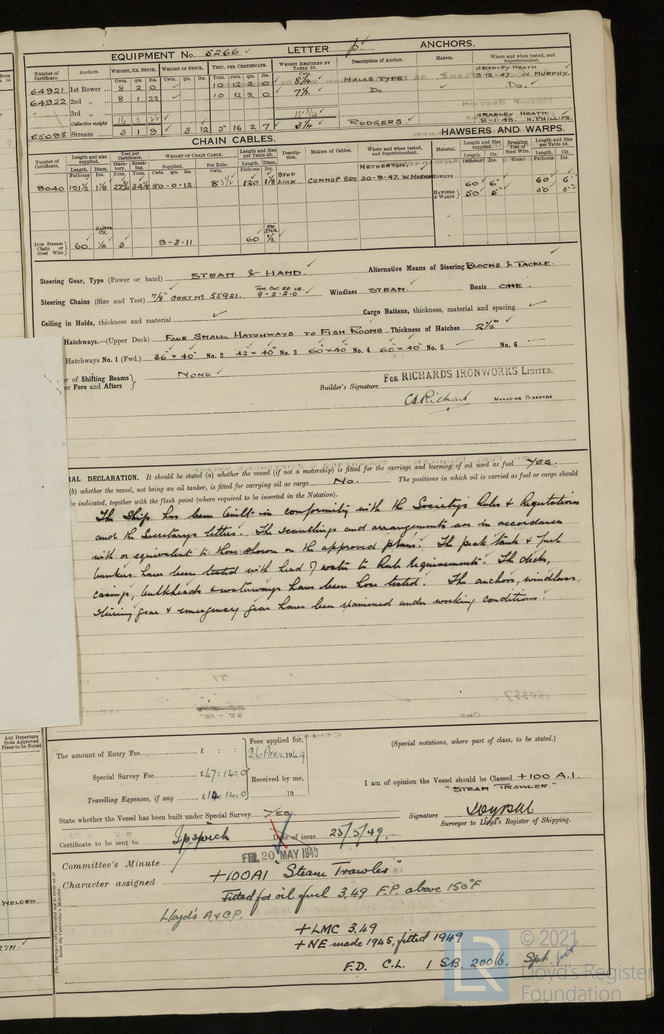 EQUIPMENT No. 5266 LETTER p. ANCHORS.
Number of Certificate. Anchors. WEIGHT, EX. STOCK. WEIGHT OF STOCK. TEST, PER CERTIFICATE. WEIGHT REQUIRED BY TABLE 53. Description of Anchor. Makers. Where and when tested, and Superintendent.
64921 1st Bower 8 2 0 10 12 2 0 8 1/4 HALLS TYPE CRADLEY HEATH 9-12-47. W. MURPHY.
64922 2nd „ 8 1 22 10 12 2 0 7 1/2 Do Do.
3rd „
Collective weight 16 3 22
65098 Stream 3 1 9 3 12 5 16 2 7 3 3/4 RODGERS CRADLEY HEATH 8-1-48. H. PHILLIPS.
CHAIN CABLES. HAWSERS AND WARPS.
Number of Certificate. Length and size supplied. Test per Certificate. WEIGHT OF CHAIN CABLE. Length and Size per Table 53. Description. Makers of Cables. Where and when tested, and Superintendent. Material. Length and Size supplied. Breaking Test of Steel Wire. Length and Size per Table 53.
9040 121 1/2 1 1/8 80-0-12 120 1 1/8 STUD LINK. NETHERTON. 30-9-47. HAWSERS & WARPS 60 60
50 50
Iron Stream Chain or Steel Wire 60 1/2 3 9-3-11 60 1/2
Steering Gear, Type (Power or hand) STEAM & HAND. Alternative Means of Steering BLOCKS & TACKLE
Steering Chains (Size and Test) 7/8" CERT No 55921. Windlass STEAM. Boats ONE.
Ceiling in Holds, thickness and material Cargo Battens, thickness, material and spacing.
Hatchways.—(Upper Deck) FOUR SMALL HATCHWAYS TO FISH ROOMS. Thickness of Hatches 2 1/2"
Hatchways No. 1 (Fwd.) 36" × 40" No. 2 42" × 40" No. 3 60" × 40" No. 4 60" × 40" No. 5 — No. 6 —
of Shifting Beams or Fore and Afters NONE
FOR RICHARDS IRONWORKS LIMITED.
Builder's Signature Richard MANAGING DIRECTOR
AL DECLARATION. It should be stated (a) whether the vessel (if not a motorship) is fitted for the carriage and burning of oil used as fuel YES.
(b) whether the vessel, not being an oil tanker, is fitted for carrying oil as cargo No. The positions in which oil is carried as fuel or cargo should
be indicated, together with the flash point (where required to be inserted in the Notation).
This Ship has been built in conformity with the Society's Rules & Regulations
and the Secretary's letters. The scantlings and arrangements are in accordance
with or equivalent to those shown on the approved plans. The peak tanks & fuel
bunkers have been tested with head of water to Rule Requirements. The decks,
casings, bulkheads & waterways have been hose tested. The anchors, windlass,
steering gear & emergency gear have been examined under working conditions.
Any Departure from Approved Plans to be Noted
The amount of Entry Fee £ : : Fees applied for, 26 Apr 1949
Special Survey Fee £47:14:0 Received by me,
Travelling Expenses, if any £14:14:0 19
(Special notations, where part of class, to be stated.)
I am of opinion the Vessel should be Classed +100 A.1.
"STEAM TRAWLER."
State whether the Vessel has been built under Special Survey YES
Signature
Surveyor to Lloyd's Register of Shipping.
Certificate to be sent to Ipswich Date of issue 25/5/49.
FRI. 20 MAY 1949
Committee's Minute
Character assigned
+100A1 "Steam Trawler"
Fitted for oil fuel 3,49 F.P. above 150°F
Lloyd's A & C.P.
+LMC 3,49
+NE made 1945, fitted 1949
F.D. C.L. 1 SB, 200 lb. Spt.
WELDED
© 2021
LR Lloyd's Register
Foundation